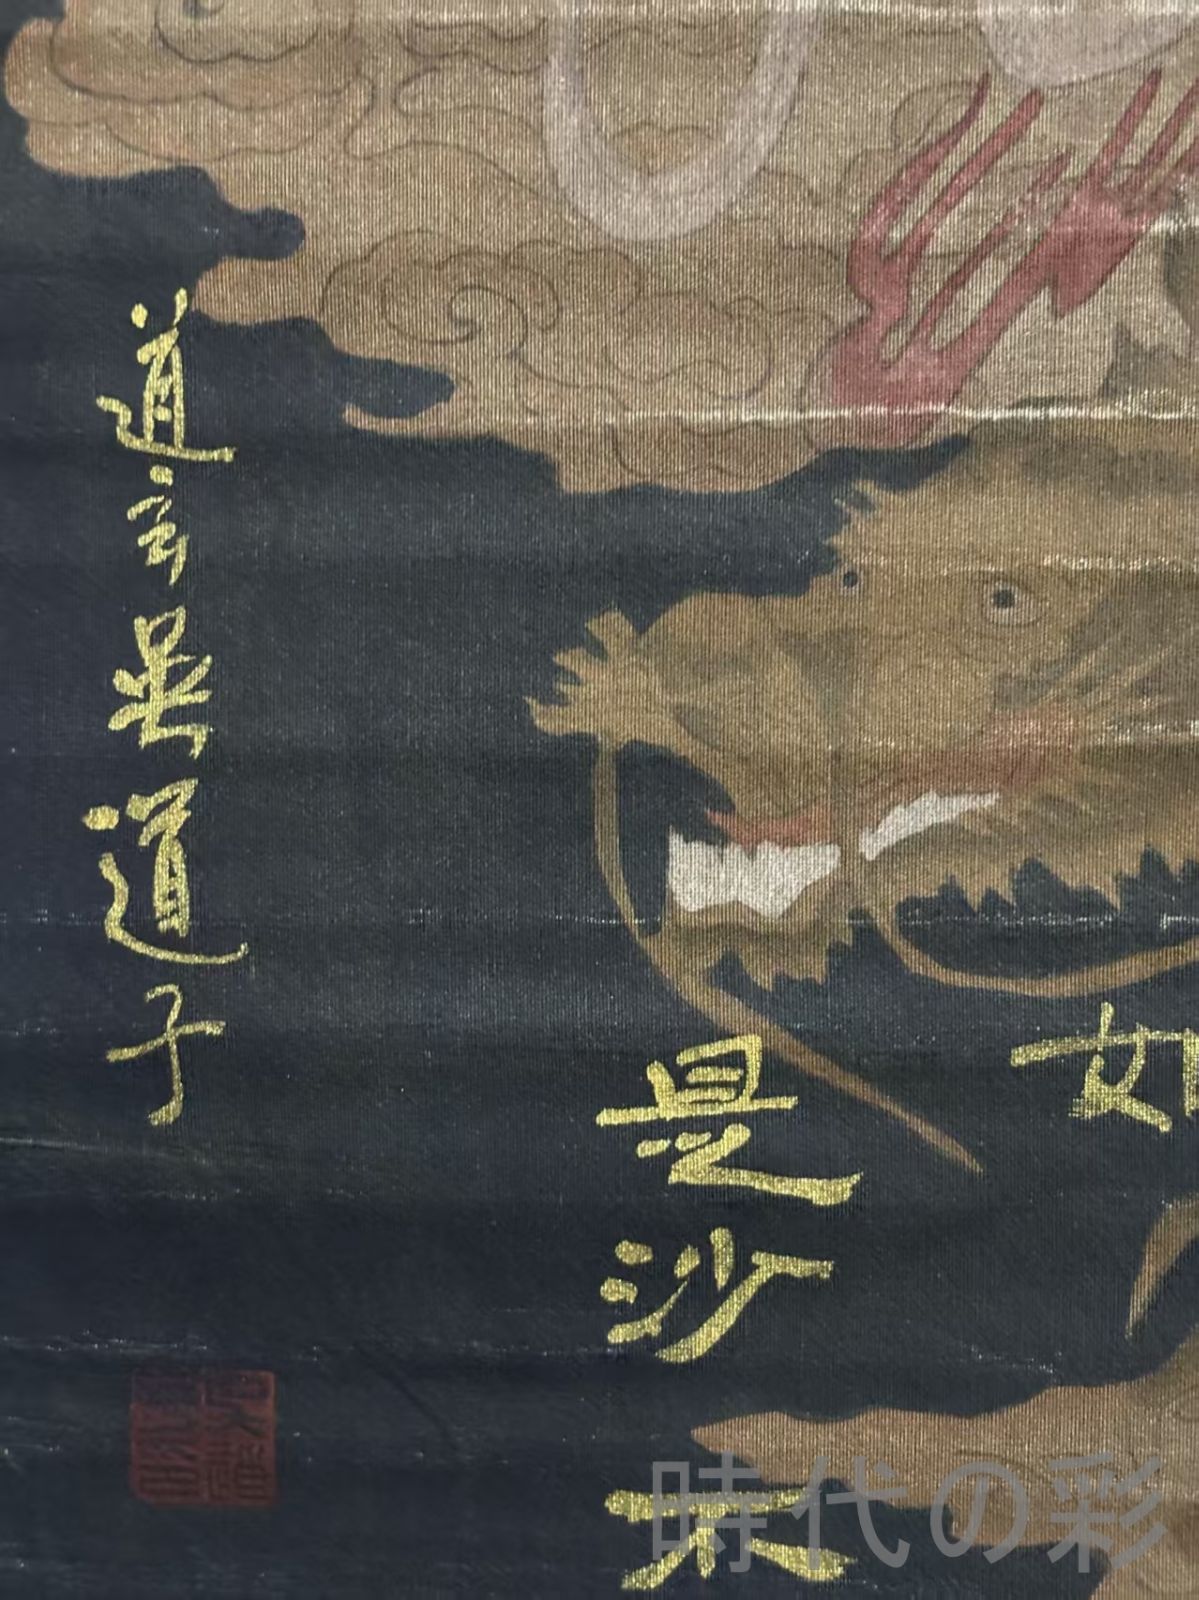 如
是沙不
道玄吳道子
時代の彩